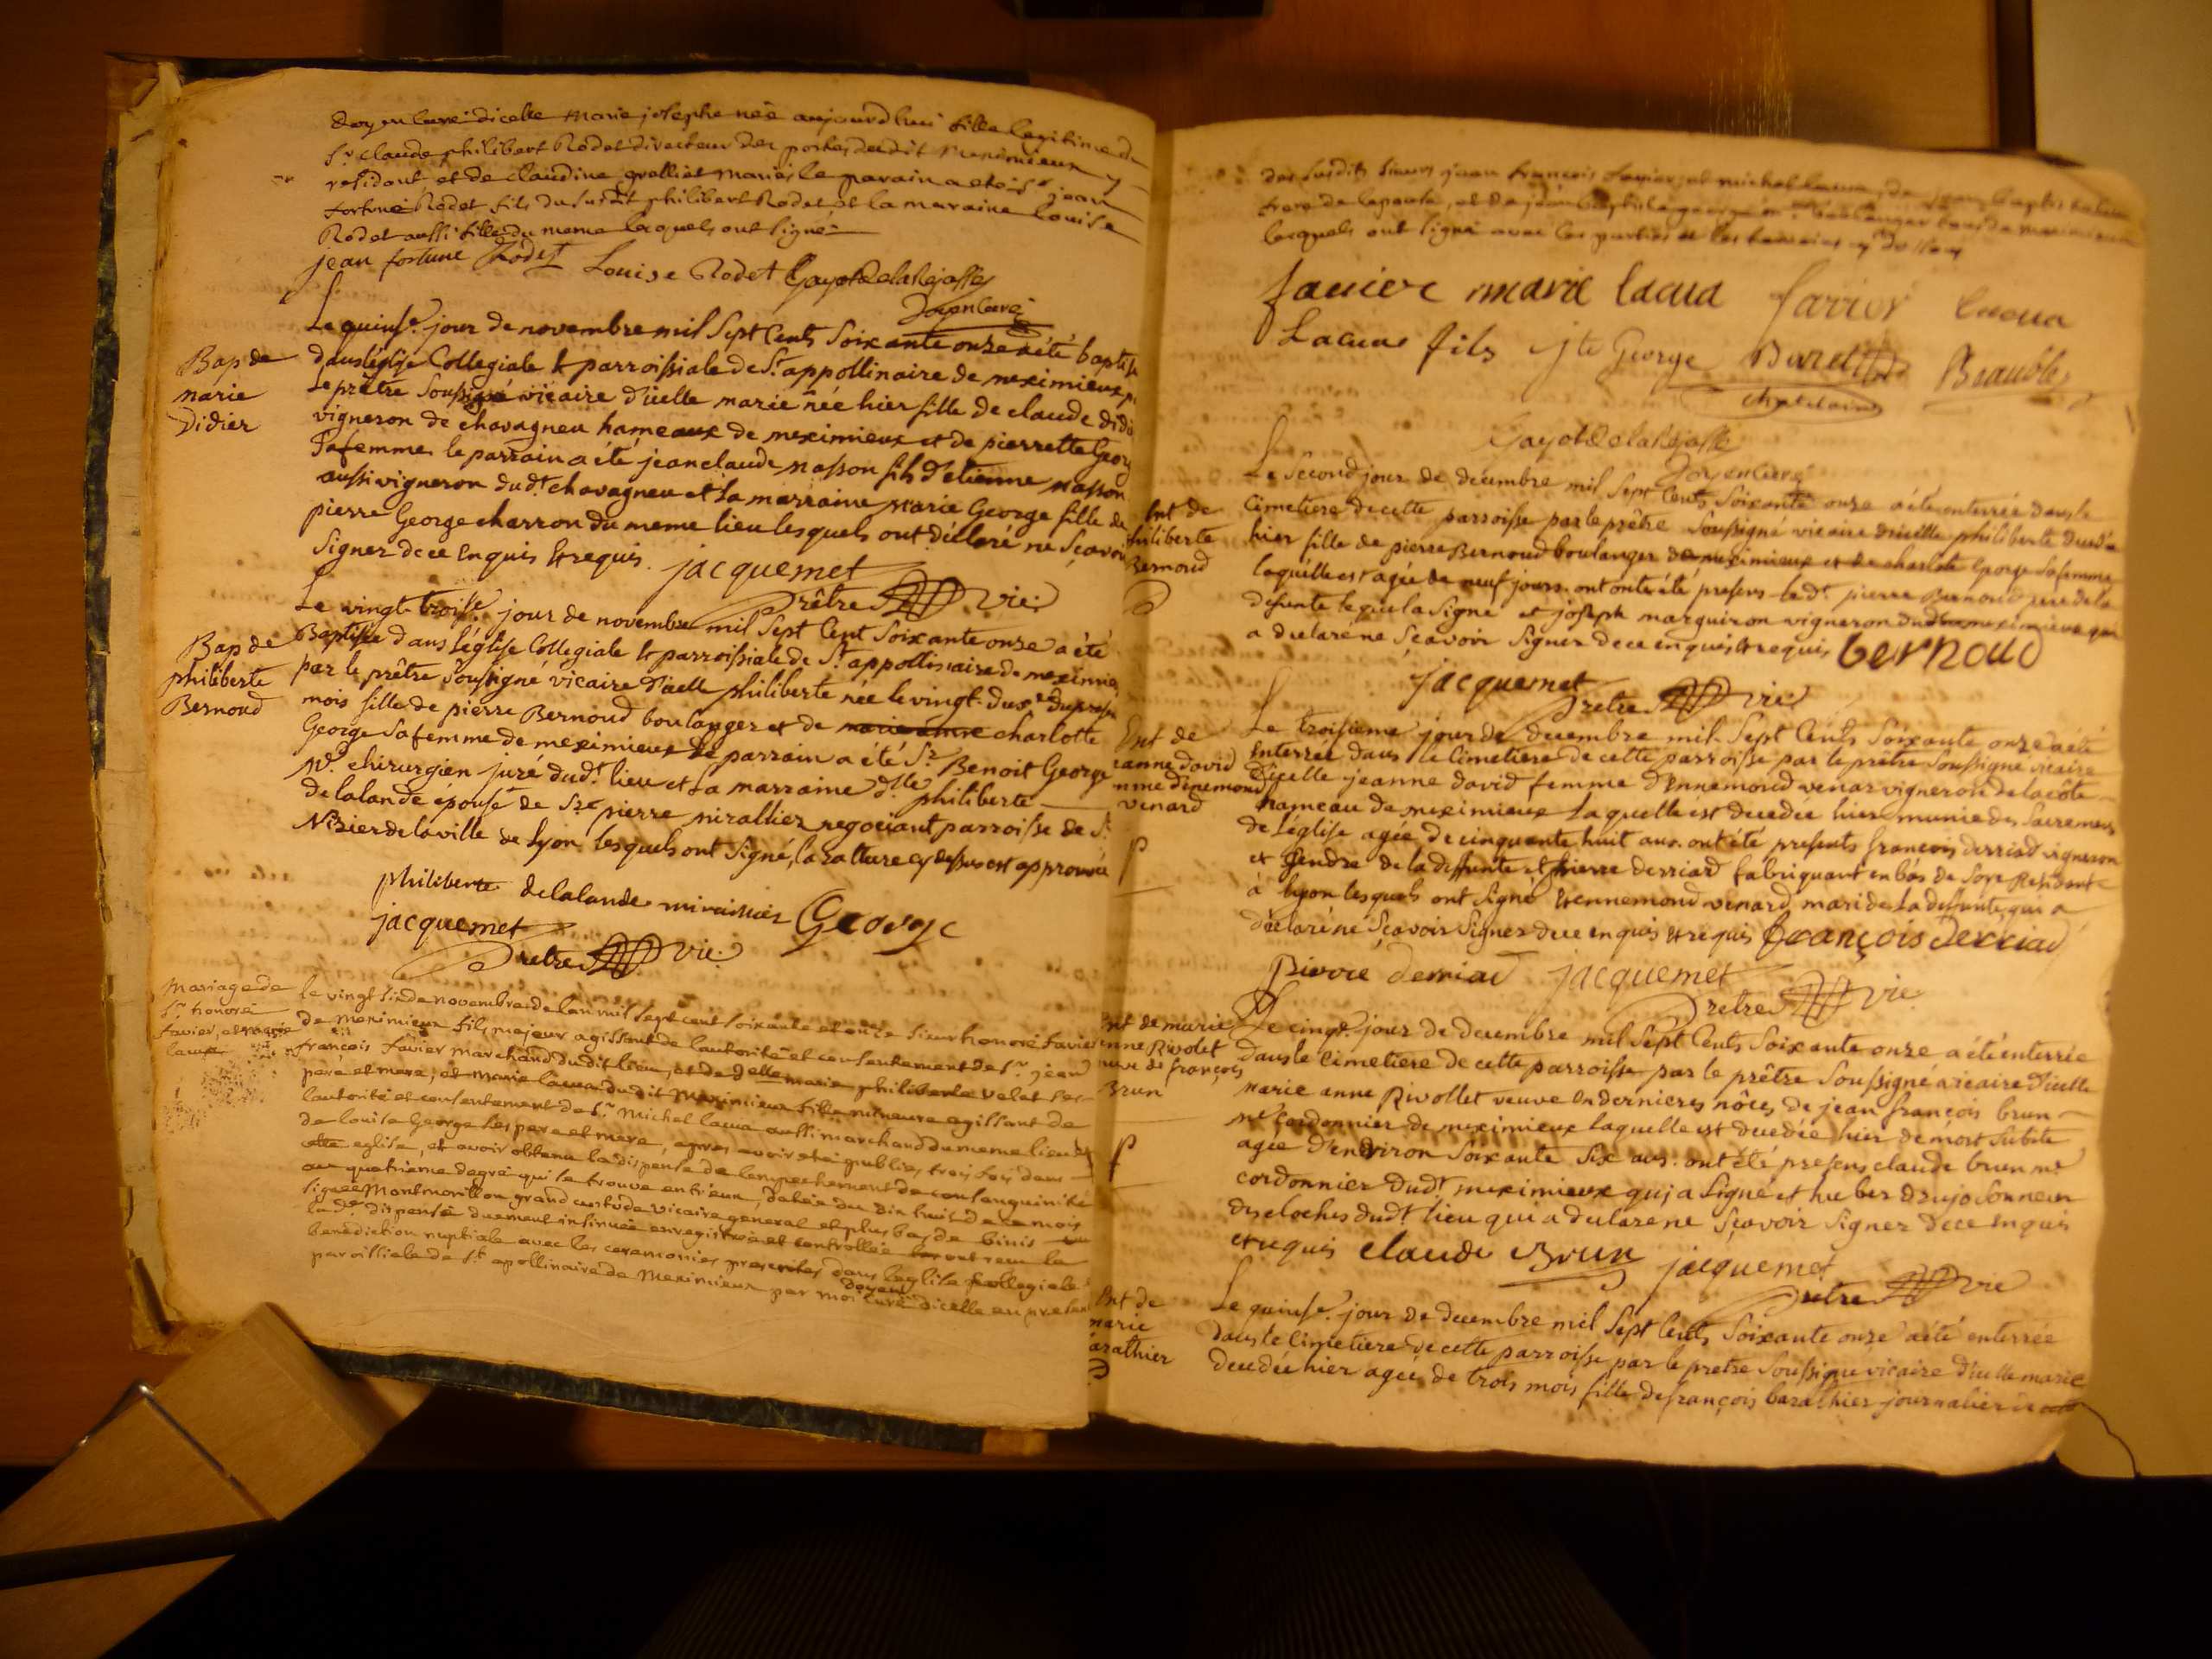 doyen curé dicelle marie josephe née aujourdhui fille legitime du
Sr claude philibert Rodet directeur des postes dudit Meximieux y
residant et de claudine grolliat mariés le parain a eté Sr jean
fortuné Rodet fils du susdt philibert Rodet et la maraine Louise
Rodet aussi fille du meme lesquels ont signé
jean fortune Rodet Louise Rodet GayotdelaRajasse
doyen curé
Bap de
marie
Didier
Le quinse. jour de novembre mil Sept Cents Soixante onze a été baptisé
dans léglise Collegiale & parroissiale de St. appollinaire de meximieux
Le prêtre Soussigné vicaire d'icelle marie née hier fille de claude didi
vigneron de chavagneu hameaux de meximieux et de pierrette Geor
Sa femme le parrain a été jean claude masson fils d'etienne masson
aussi vigneron dudt. chavagneu et La marraine marie George fille de
pierre George charron du meme lieu lesquels ont déclaré ne Sçavoi
Signer de ce Enquis & requis. jacquemet
Prêtre vic.
Bap de
philiberte
Bernoud
Le vingt troisse. jour de novembre mil Sept Cent Soixante onze a été
Baptisée dans l'église Collegiale & parroissiale de St. appollinaire de meximieu
par le prêtre Soussigné vicaire d'icelle philiberte née le vingt-deuxe. du prese
mois fille de pierre Bernoud boulanger et de charlotte
George Sa femme de meximieux Le parrain a été Sr. Benoit George
Me. chirurgien juré dudt. lieu et La marraine dlle philiberte
delalande épouse de Sr. pierre miralliez negociant parroisse de St.
Nizier de la ville de Lyon lesquels ont Signé, la rature cy dessus est approuvée
philiberte delalande miralliez George
jacquemet
Prêtre vic.
Mariage de
Sr. honoré
favier, et marie
lacua
le vingt six de novembre de lan mil sept cent soixante et onze sieur honoré favier
de Meximieux fils majeur agissant de lautorité et consentement de Sr. jean
francois favier marchand dudit lieu, et de delle marie philiberte velat ses
pere et mere, et marie lacua dudit Meximieux fille mineure agissant de
lautorité et consentement de Sr. Michel lacua aussi marchand du meme lieu et
de louise George ses pere et mere, apres avoir eté publiés trois fois dans
cette eglise, et avoir obtenu la dispense de lempechement de consanguinité
au quatrieme degré qui se trouve entr'eux, datée du dix huit de ce mois
signée Montmorillon grand custode vicaire general et plus bas de binis
lad. dispense duement insinuée enregistrée et controllée ont recu la
benediction nuptiale avec les ceremonies prescrites dans leglise collegiale
paroissiale de St. apollinaire de Meximieux par moi doyen curé dicelle en presen
des susdits sieurs jean francois favier, et michel lacua, de jean baptiste lacua
frere de lepouse, et de jean baptiste george me. boulanger tous de meximieux
lesquels ont signé avec les parties et les temoins
favier marie lacua favier lacua
Lacua fils jte George Buret Beauble
chatelain
GayotdelaRajasse
doyen curé
Ent de
philiberte
Bernoud
Le Second jour de décembre mil Sept Cents Soixante onze a été enterrée dans le
Cimetiere de cette parroisse par le prêtre Soussigné vicaire d'icelle philiberte decedée
hier fille de pierre Bernoud boulanger de meximieux et de charlote George Sa femme
laquelle est agée de neuf jours. ont été presens ledt. pierre Bernoud pere de la
defunte lequel a Signé et joseph marguiron vigneron dud. meximieux qui
a déclaré ne Sçavoir Signer de ce enquis & requis Bernoud
jacquemet
Prêtre vic
Ent de
jeanne david
femme d'enemond
venard
Le troisieme jour de decembre mil Sept Cents Soixante onze a été
Enterrée dans le Cimetiere de cette parroisse par le prêtre Soussigné vicaire
d'icelle jeanne david femme d'Ennemond venar vigneron de la côte
hameau de meximieux Laquelle est decedée hier munie des Sacremens
de L'église agée de cinquante huit ans. ont été presents francois derriad vigneron
et Gendre de la deffunte & pierre derriad fabriquant en bas de Soye Residant
à Lyon lesquels ont Signé & ennemond venard mari de La deffunte qui a
déclaré ne Sçavoir Signer de ce enquis & requis françois derriad
pierre derriad jacquemet
Prêtre vic
Ent de marie
anne Rivolet
veuve de françois
Brun
Le cinqe. jour de decembre mil Sept Cents Soixante onze a été enterrée
dans le Cimetiere de cette parroisse par le prêtre Soussigné vicaire d'icelle
marie anne Rivollet veuve en dernieres nôces de jean françois brun
me cordonnier de meximieux laquelle est decedée hier de mort Subite
agée d'environ Soixante Six ans. ont été presens claude brun me
cordonnier dudt. meximieux qui a Signé et huber drujo Sonneur
des cloches dudt lieu qui a declaré ne Sçavoir Signer de ce enquis
et requis claude Brun jacquemet
Prêtre vic
Ent de
marie
barathier
Le quinse. jour de decembre mil Sept Cents Soixante onze a été enterrée
dans le Cimetiere de cette parroisse par le prêtre Soussigné vicaire d'icelle marie
decedée hier agée de trois mois fille de françois barathier journalier de